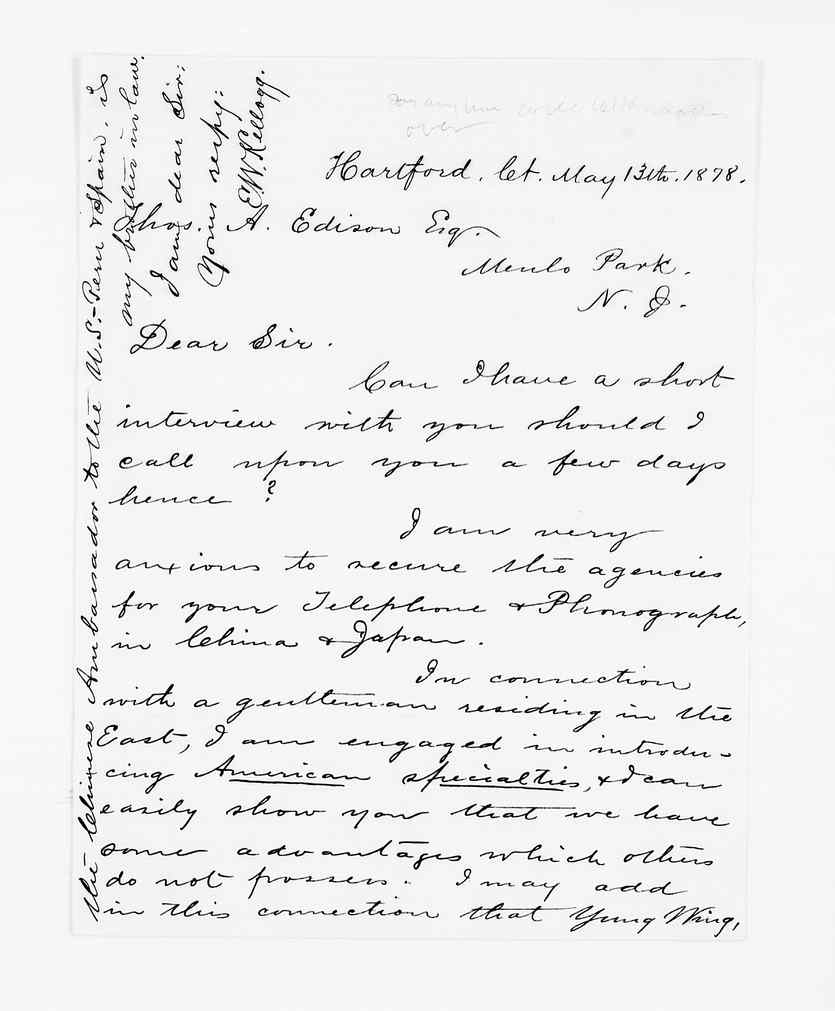 Hartford. Ct. May 13th. 1878.
Thos. A. Edison Esq.
Menlo Park.
N. J.
Dear Sir.
Can I have a short
interview with you should I
call upon you a few days
hence?
I am very
anxious to secure the agencies
for your Telephone & Phonograph,
in China & Japan.
In connection
with a gentleman residing in the
East, I am engaged in introdu-
cing American specialties, & I can
easily show you that we have
some advantages which others
do not possess. I may add
in this connection that Yung Wing,
the Chinese Ambassador to the U.S.- Peru & Spain. is
my brother in law.
I am dear Sir:
Yours respy:
E.W. Kellogg.
over